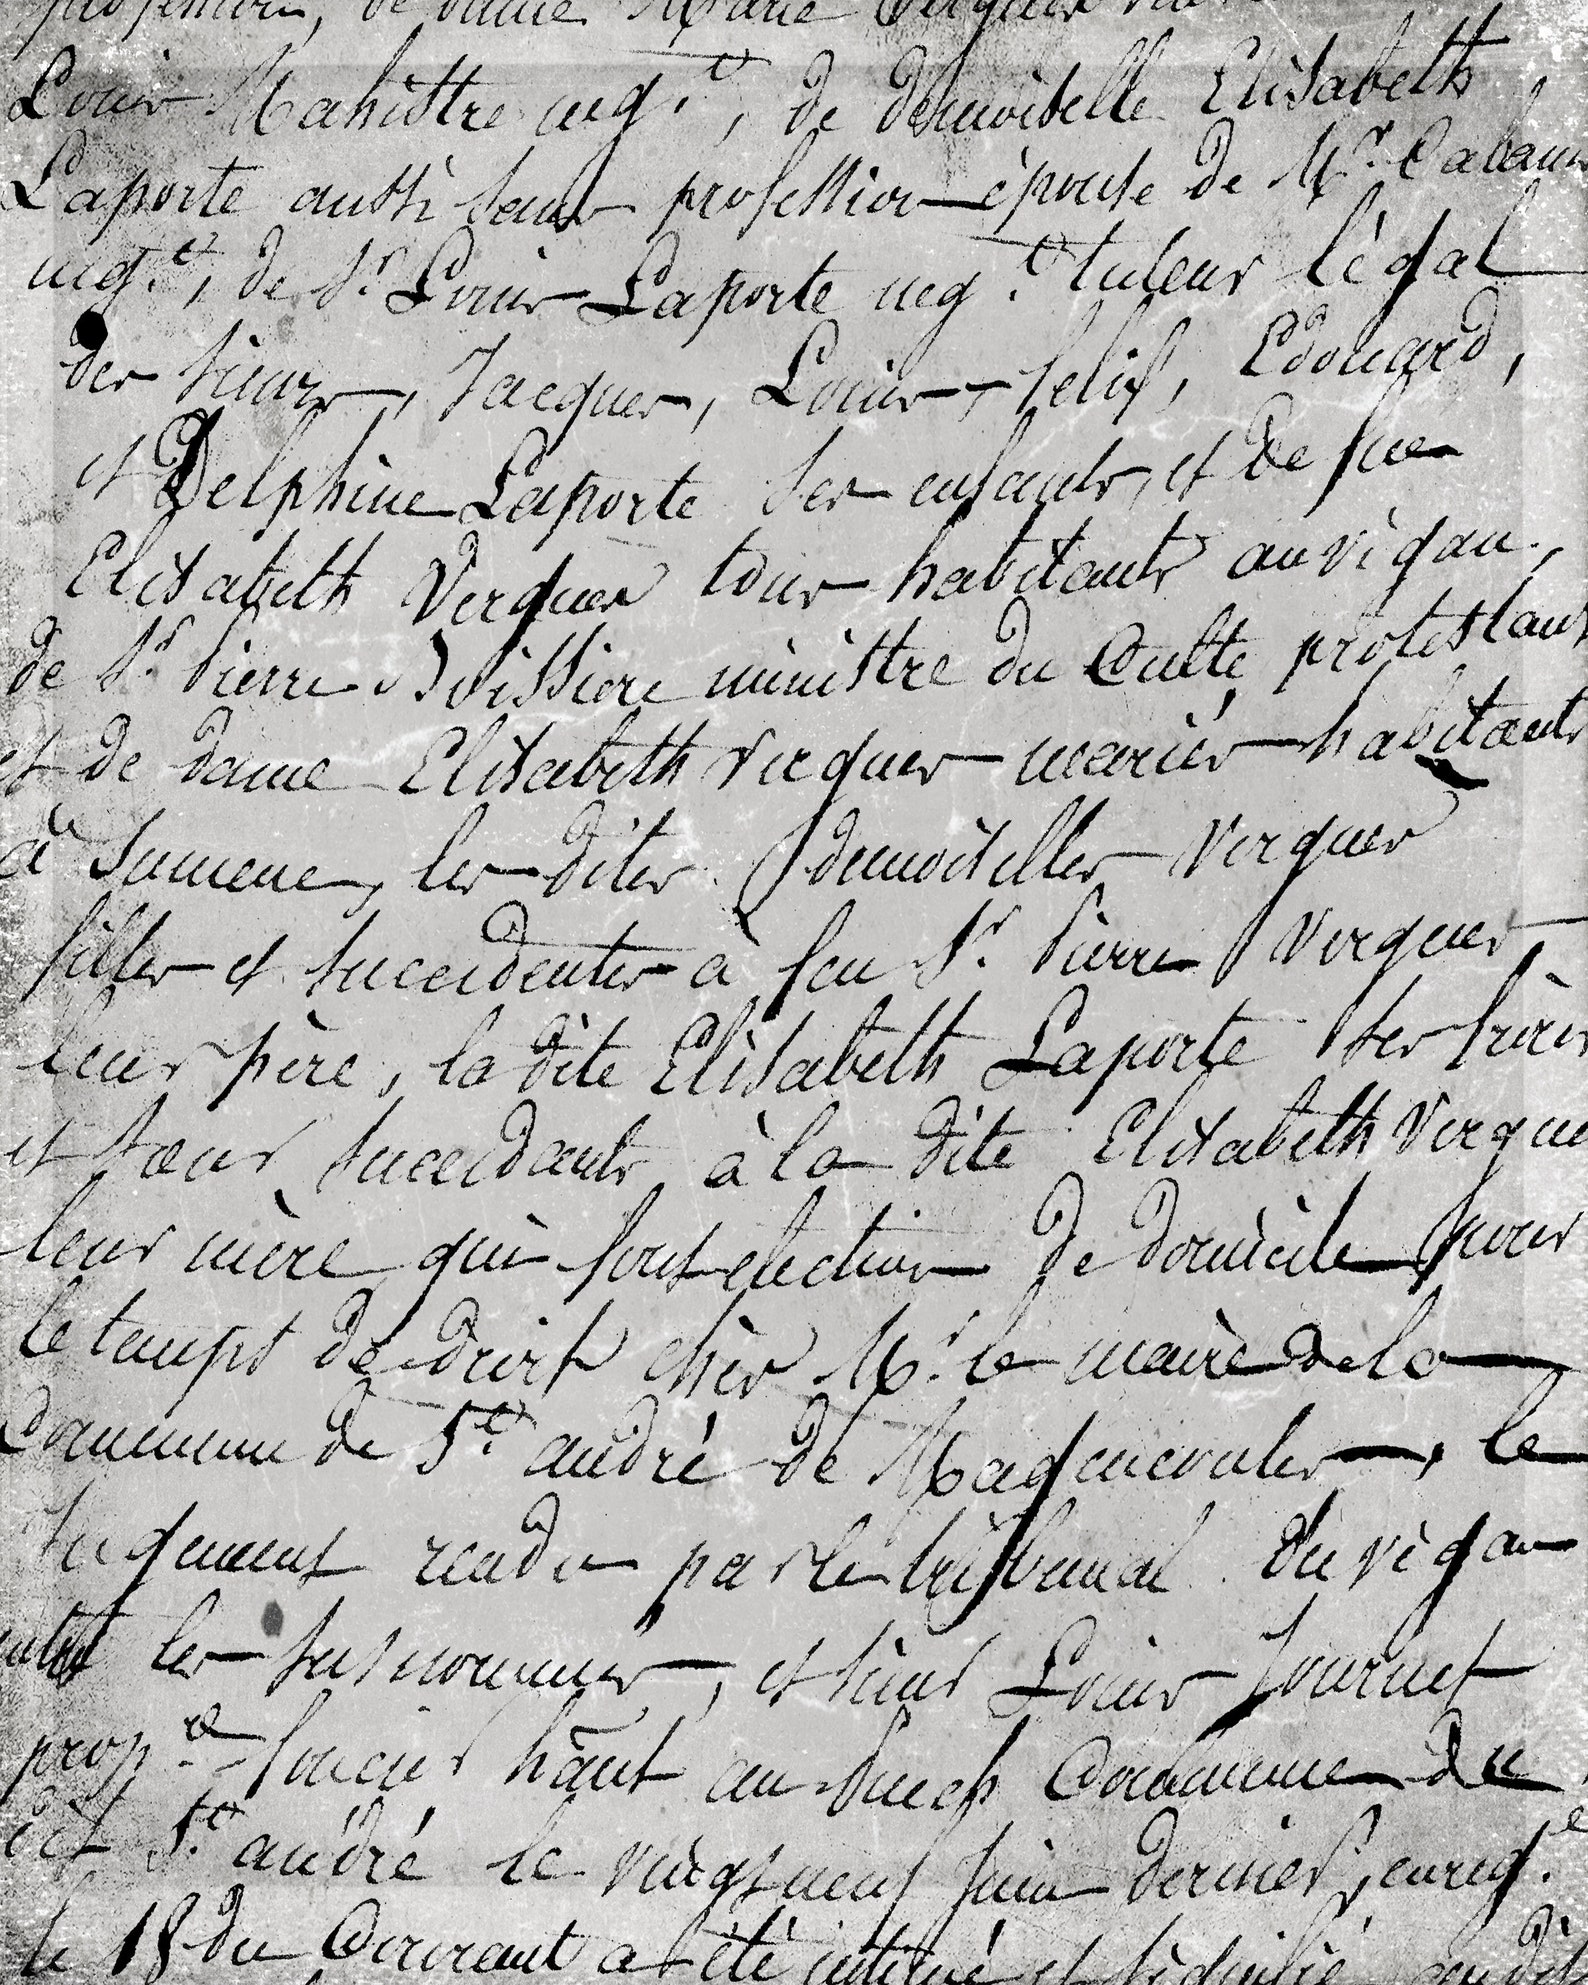 profession, de dame Marie Verguer
Louis Mahistre neg.t, de demoiselle Elisabeth
Laporte aussi sans profession épouse de Mr.
neg.t, de Sr. Louis Laporte neg.t tuteur légal
des sieurs, Jacques, Louis, felix, Edouard,
et Delphine Laporte ses enfants, et de feue
Elisabeth Verguer tous habitants au vigan,
de Sr. Pierre Boissiere ministre du Culte protestant
et de dame Elisabeth Verguer mariés habitants
à Sumene, les dites demoiselles Verguer
filles et succedentes à feu Sr. Pierre Verguer,
leur père, la dite Elisabeth Laporte ses frères
et sœur succedants à la dite Elisabeth Vergue
leur mère, qui font election de domicile pour
le temps de droit chès Mr. le maire de la
Commune de St. andré de Magencoules, le
jugement rendu par le tribunal du vigan
entre les susnommés, et sieur Louis Journet
prop.re foncier hãnt au Puech Commune du
dit St. andré le vingt neuf juin dernier, enreg.é
le 18 du Courant a été intimé et signifié